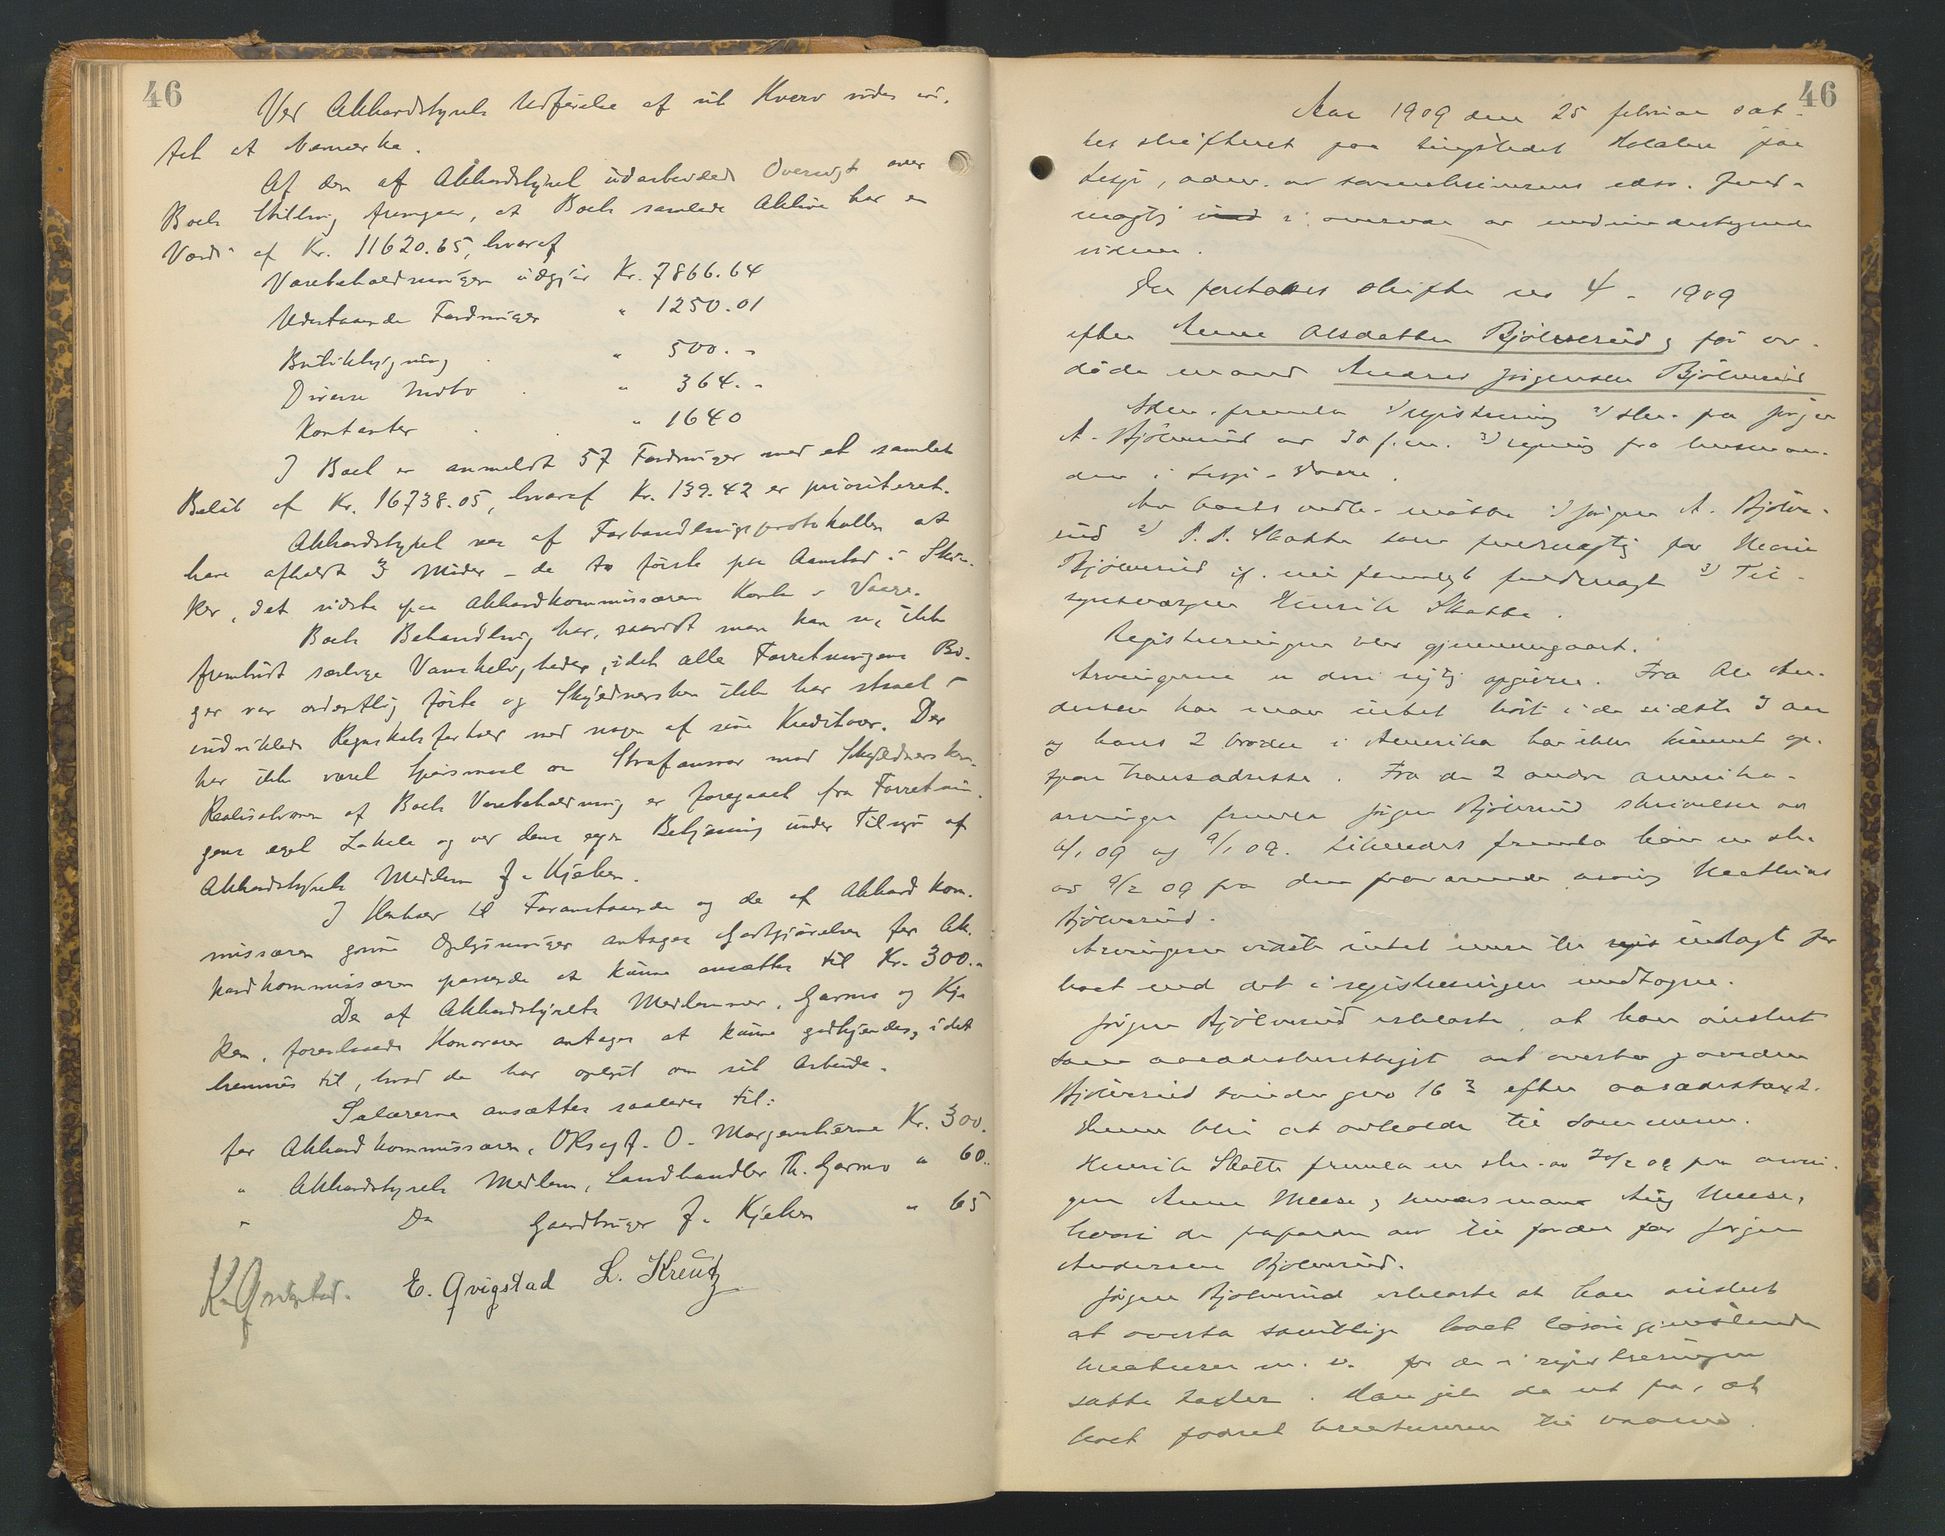 46
Ved Akkordstyrets Udførelse af sit Hverv vides in-
tet at bemærke.
Af den af Akkordstyret udarbeidede Oversigt over
Boets Stilling fremgaar, at Boets samlede Aktiva har en
Værdi af Kr. 11620.65, hvoraf
Varebeholdningen udgjør Kr. 7866.64
Udestaaende Fordringer " 1250.01
Butikbygning " 500.-
Diverse Indbo " 364.-
Kontanter " 1640
I Boet er anmeldt 57 Fordringer med et samlet
Beløb af Kr. 16738.05, hvoraf Kr. 139.42 er prioriteret.
Akkordstyret sees af Forhandlingsprotokollen at
have afholdt 3 Møder - de to første paa Aanstad i Skia-
ker, det sidste paa Akkordkommissærens Kontor i Vaage.
Boets Behandling har, saavidt man kan se, ikke
frembudt særlige Vanskeligheder, idet alle Forretningens Bø-
ger var ordentlig førte og Skyldnersken ikke har staaet i
indviklede Regnskabsforhold med nogen af sine Kreditorer. Der
har ikke været Spørsmaal om Strafansvar mod Skyldnersken.
Realisationen af Boets Varebeholdning er foregaaet fra Forretnin-
gens eget Lokale og ved dens egen Betjening under Tilsyn af
Akkordstyrets Medlem J. Kjæken.
I Henhold til Foranstaaende og de af Akkordkom-
missæren givne Oplysninger antages Godtgjørelsen for Ak-
kordkommissæren passende at kunne ansættes til Kr. 300.-
De af Akkordstyrets Medlemmer, Garmo og Kjæ
ken, foreslaaede Honorarer antages at kunne godkjendes, idet
hennes til, hvad de har oplyst om sit Arbeide.
Salærerne ansættes saaledes til:
for Akkordkommissæren, ORsagf. O. Morgenstierne Kr. 300.
" Akkordstyrets Medlem, Landhandler Th. Garmo " 60..
" Do Gaardbruger J. Kjæken " 65
K. Qvigstad. E. Qvigstad L. Kreutz
46
Aar 1909 den 25 februar sat-
tes skifteret paa tingstedet Holaker for
Lesje, adm. av sorenskriverens edsv. fuld-
mægtig i overvær av medunderskrevne
vidner.
Der foretokes skifte no 4 - 1909
efter Anne Olsdatter Bjølverud og før av-
døde mand Andres Jørgensen Bjølverud
Adm. fremla 1) registrering 2) skr. fra Jørgen
A. Bjølverud av 30 f.m. 3) regning fra lensman-
den i Lesje.
For boets vedk. møtte 1) Jørgen A. Bjølve-
rud 2) P. P. Skotte som fuldmægtig for Marie
Bjølverud if. fuldmagt 3) Til-
synsværgen Henrik Skotte.
Registreringen blev gjennemgaaet.
Arvingerne er deri rigtig opgivne. Fra Ole An-
dersen har man intet hørt i de sidste 3 aar
og hans 2 brødre i Amerika har ikke kunnet op-
spore hans adresse. Fra de 2 andre amerika-
arvinger fremla Jørgen Bjølverud skrivelser av
6/1 09 og 9/1 09. Likeledes fremla han en skr.
av 9/2 09 fra den fraværende arving Mathias
Bjølverud.
Arvingerne vidste intet mere til indtægt for
boet end det i registreringen medtagne.
Jørgen Bjølverud erklærte, at han ønsket
som aasædesberettiget at overta gaarden
Bjølverud søndre gno 16 3 efter aasædestaxt.
Denne blir at avholde til sommeren.
Henrik Skotte fremla en skr. av 20/2 09 fra arvin-
gen Anne Meese og hendes mand Aug Meese,
hvori de frafalder arv til fordel for Jørgen
Andersen Bjølverud.
Jørgen Bjølverud erklærte at han ønsket
at overta samtlige boet løsøregjenstande
kreaturer m. v. for de i registreringen
satte takster. Han gik da ut fra, at
boet fodret kreaturene til vaaren.